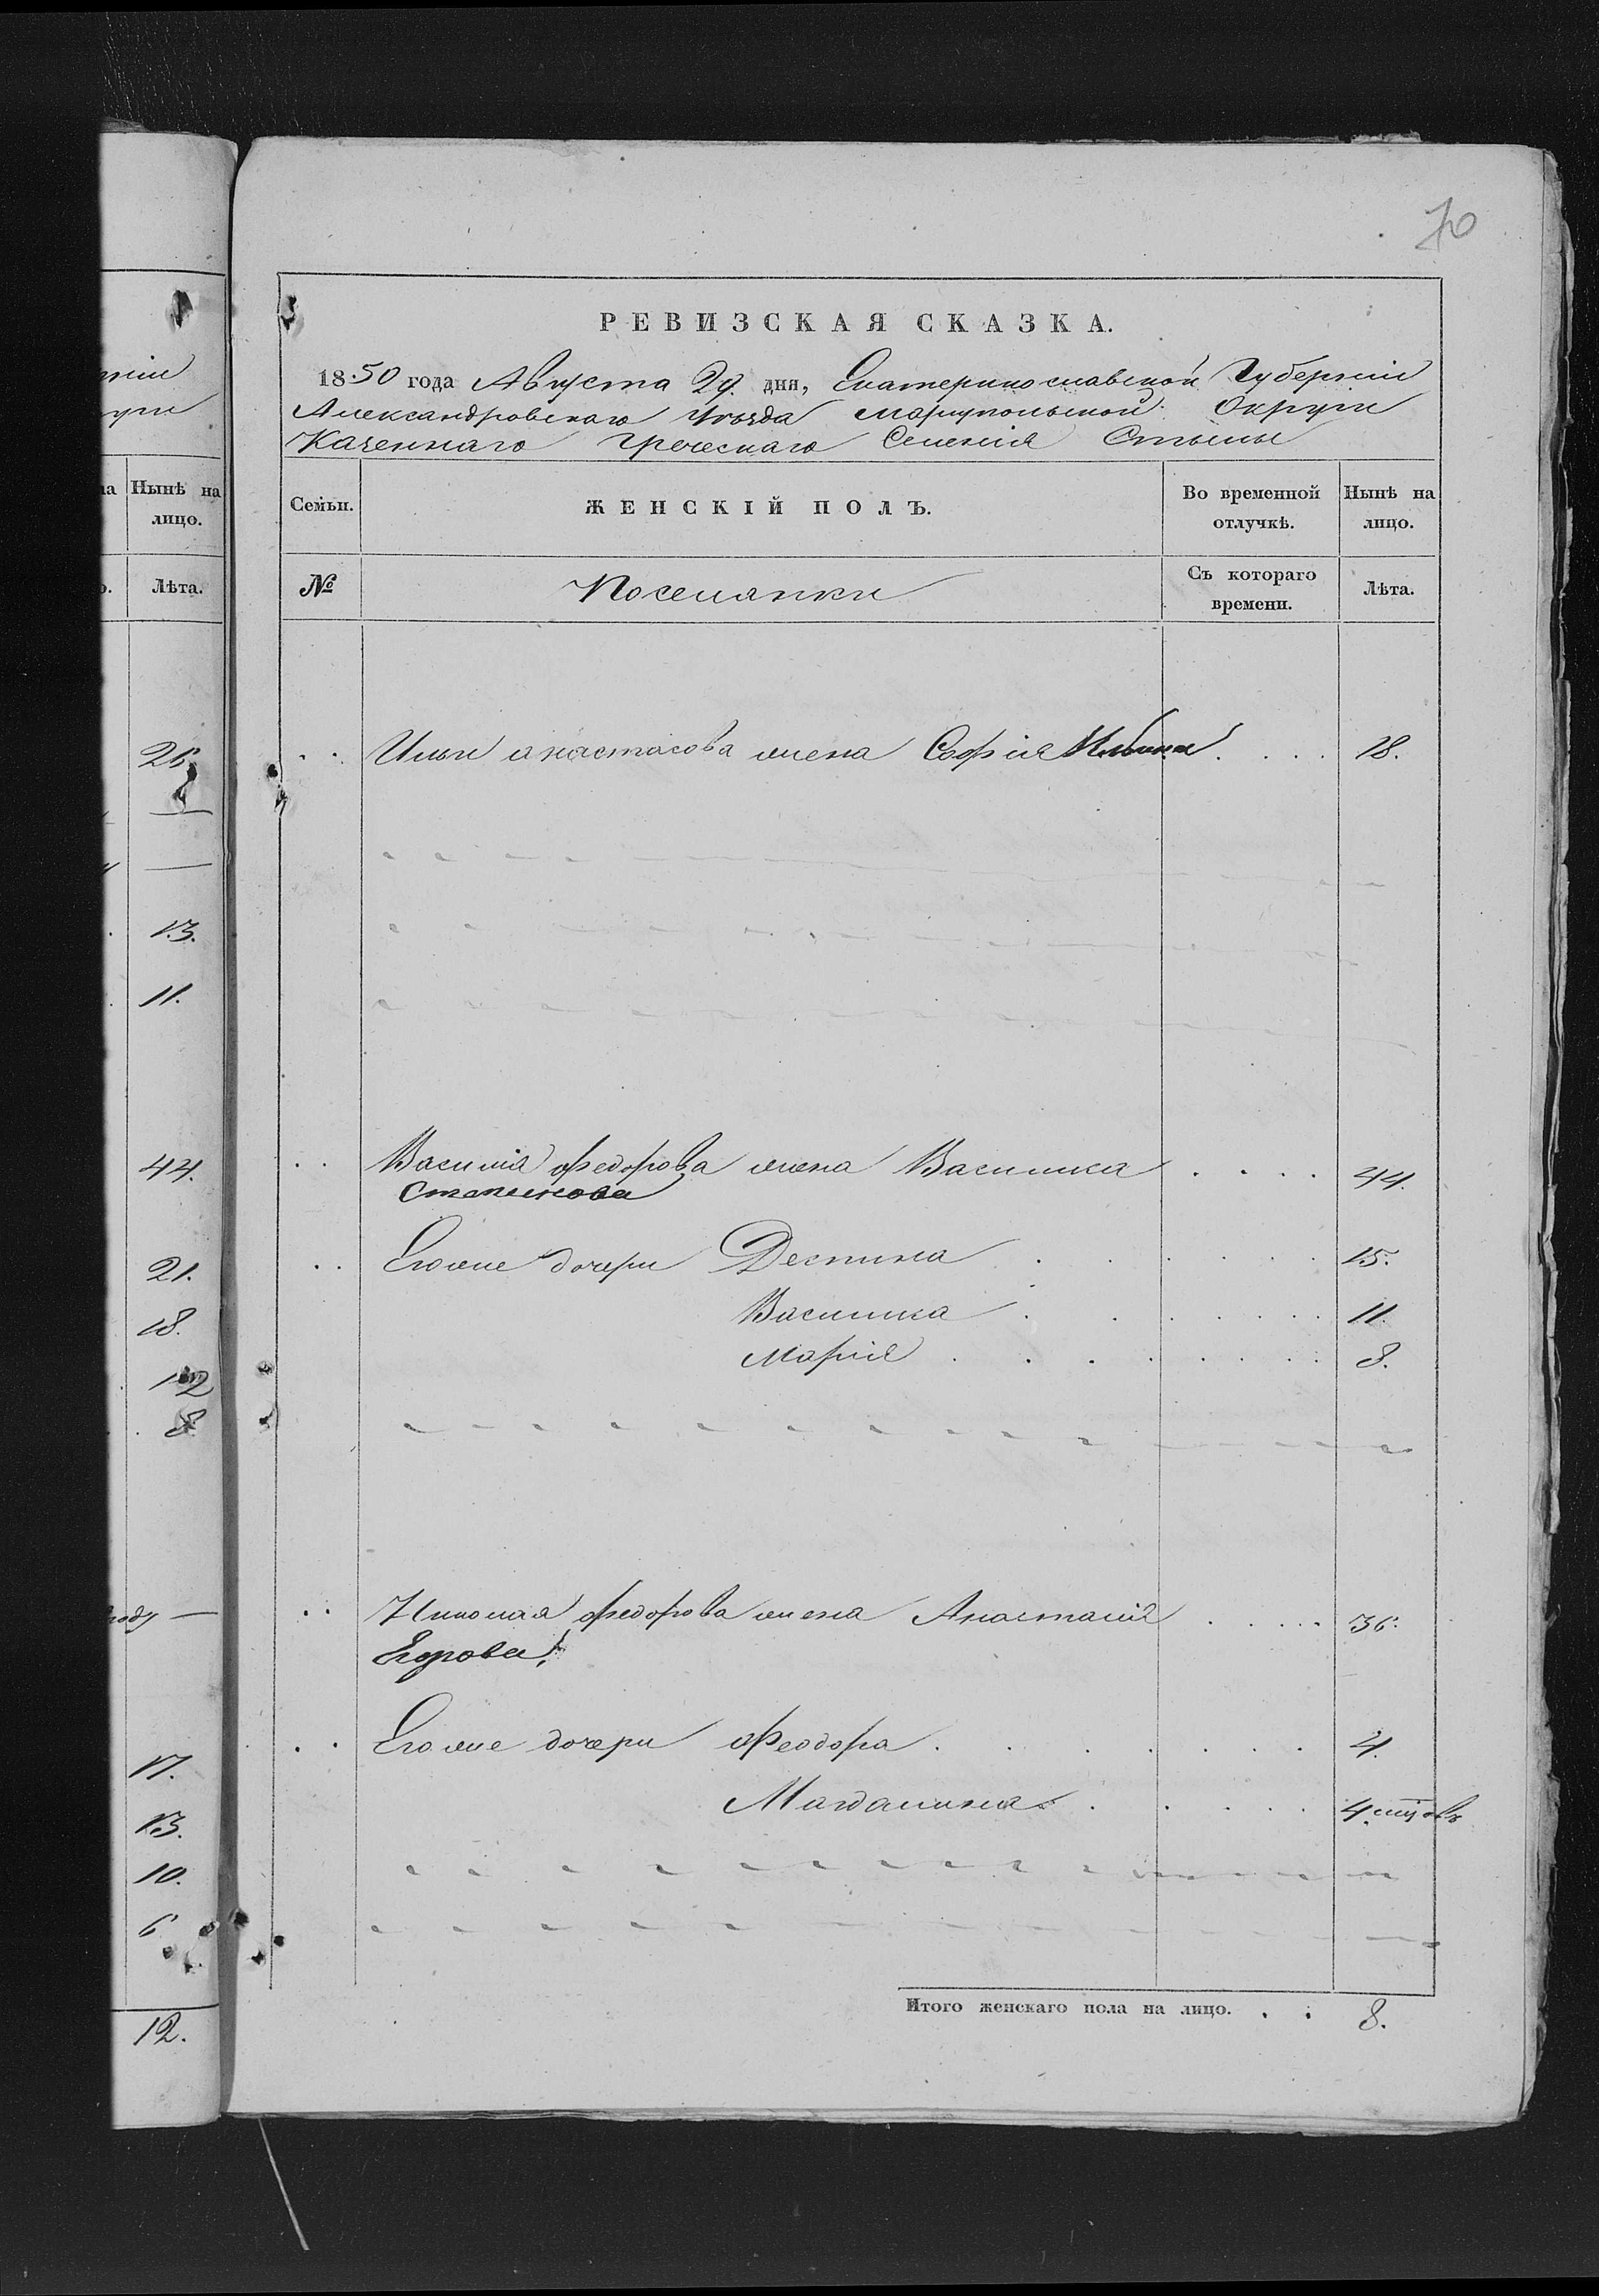 70
РЕВИЗСКАЯ СКАЗКА.
1850 года Августа 29. дня, Екатеринославской Губерніи
Александровскаго Уѣзда Маріупольской Округи
Казеннаго Греческаго Селенія Стылы
на Нынѣ на лицо.
Лѣта.
Семьи.
ЖЕНСКІЙ ПОЛЪ.
Во временной отлучкѣ.
Нынѣ на лицо.
№
Поселянки
Съ котораго времени.
Лѣта.
26
13.
11.
44.
21.
18.
12
8
17.
13.
10.
6
12.
Ильи Анастасова жена Софія Ильина . . . . 18.
Василія Федорова жена Василика . . . . 44.
Степанова
Его же дочери Деспина 15.
Василика 11.
Марія 8.
Николая Федорова жена Анастасія . . . . 36.
Егорова,
Его же дочери Феодора 4.
Магдалина 4. мцовъ
Итого женскаго пола на лицо. . . 8.